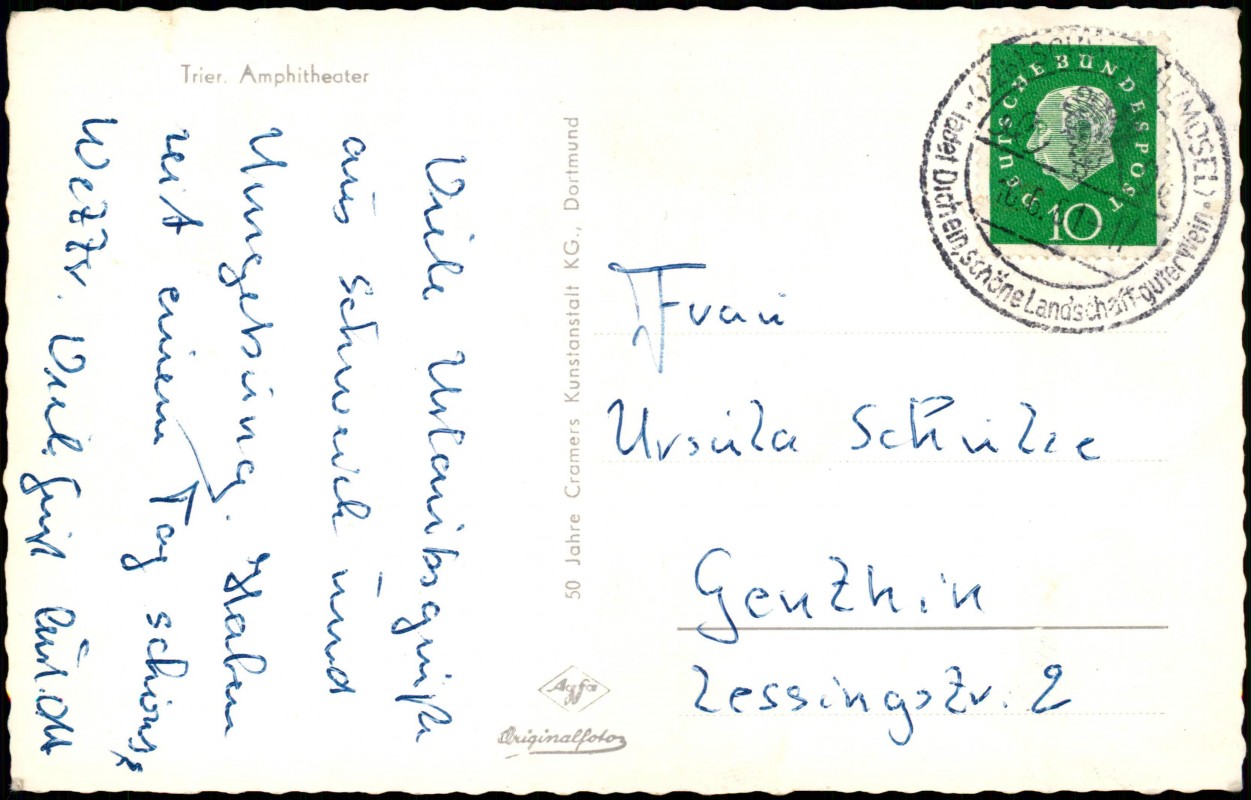 Trier. Amphitheater
Viele Urlaubsgrüße
aus Schweich und
Umgebung. Haben
seit einem Tag schönes
Wetter. Viele Grüße
50 Jahre Cramers Kunstanstalt KG., Dortmund
Agfa
Originalfoto
DEUTSCHE BUNDESPOST
10
(MOSEL)
ladet Dich ein, schöne Landschaft-guter Wein
Frau
Ursula Schulze
Genthin
Lessingstr. 2